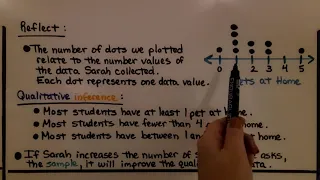 Reflect :
• The number of dots we plotted
relate to the number values of
the data Sarah collected.
Each dot represents one data value.
0 5
Pets at Home
Qualitative inference :
• Most students have at least 1 pet at home.
• Most students have fewer than 4 at home.
• Most students have between 1 and at home.
• If Sarah increases the number of asks,
the sample, it will improve the